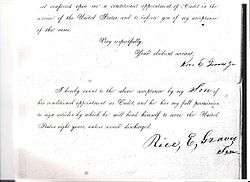 it conferred upon me a conditional appointment of Cadet in the
service of the United States and to inform you of my acceptance
of the same.
Very respectfully,
Your obedient servant,
Rice E Graves Jr
I hereby assent to the above acceptance by my Son of
his conditional appointment as Cadet, and he has my full permission
to sign articles by which he will bind himself to serve the United
States eight years, unless sooner discharged.
Rice, E, Graves
Sen